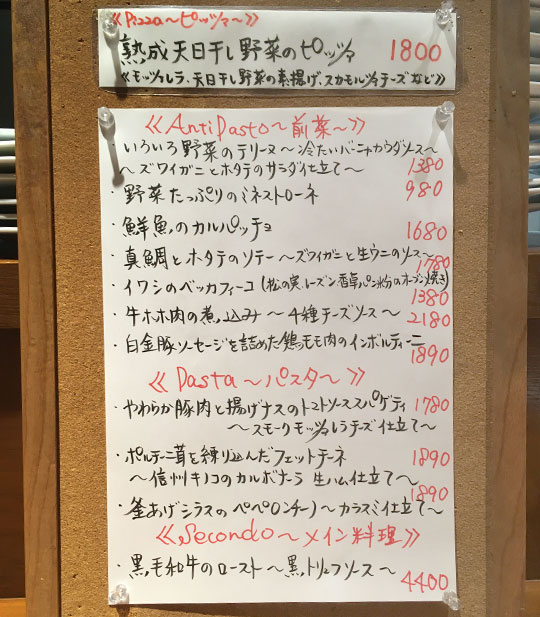 ≪Pizza～ピッツァ～≫
熟成天日干し野菜のピッツァ 1800
≪モッツァレラ、天日干し野菜の素揚げ、スカモルツァチーズなど≫
≪AntiPasto～前菜～≫
・いろいろ野菜のテリーヌ～冷たいバーニャカウダソース～
～ズワイガニとホタテのサラダ仕立て～ 1380
・野菜たっぷりのミネストローネ 980
・鮮魚のカルパッチョ 1680
・真鯛とホタテのソテー～ズワイガニと生ウニのソース～ 1780
・イワシのベッカフィーコ(松の実、レーズン、香草パン粉のオーブン焼き) 1380
・牛ホホ肉の煮込み～4種チーズソース～ 2180
・白金豚ソーセージを詰めた鶏モモ肉のインボルティーニ 1890
≪Pasta～パスタ～≫
・やわらか豚肉と揚げナスのトマトソーススパゲティ 1780
～スモークモッツァレラチーズ仕立て～
・ポルチーニ茸を練り込んだフェットチーネ 1890
～信州キノコのカルボナーラ 生ハム仕立て～
・釜あげシラスのペペロンチーノ～カラスミ仕立て～ 1890
≪Secondo～メイン料理≫
・黒毛和牛のロースト～黒トリュフソース～ 4400